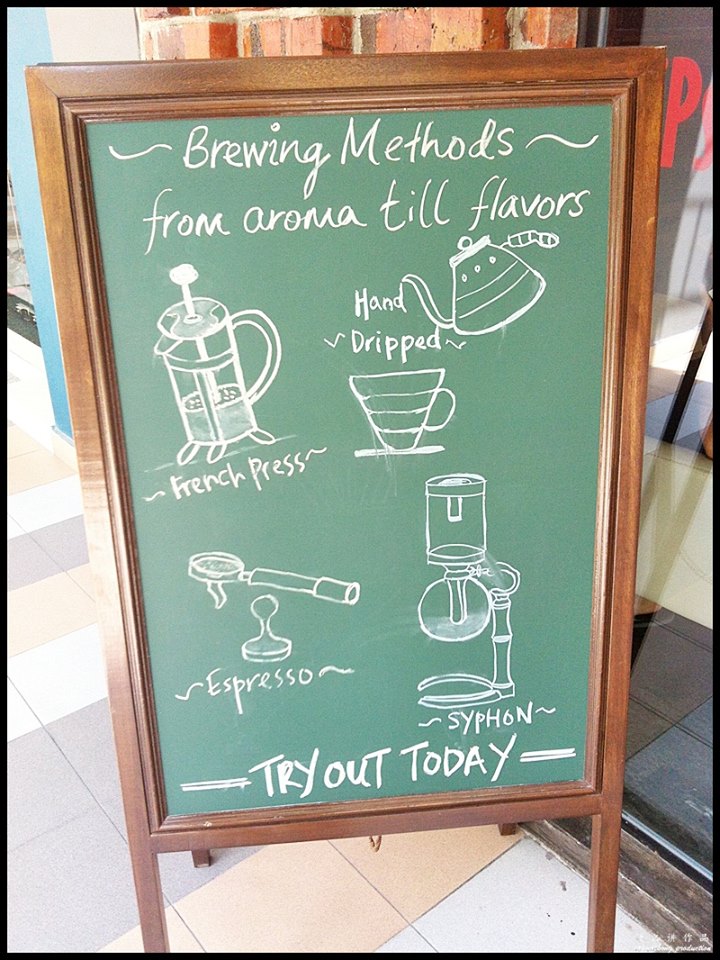 ~ Brewing Methods ~
from aroma till flavors
Hand
~ Dripped ~
~ French Press ~
~ Espresso ~
~ SYPHON ~
TRY OUT TODAY